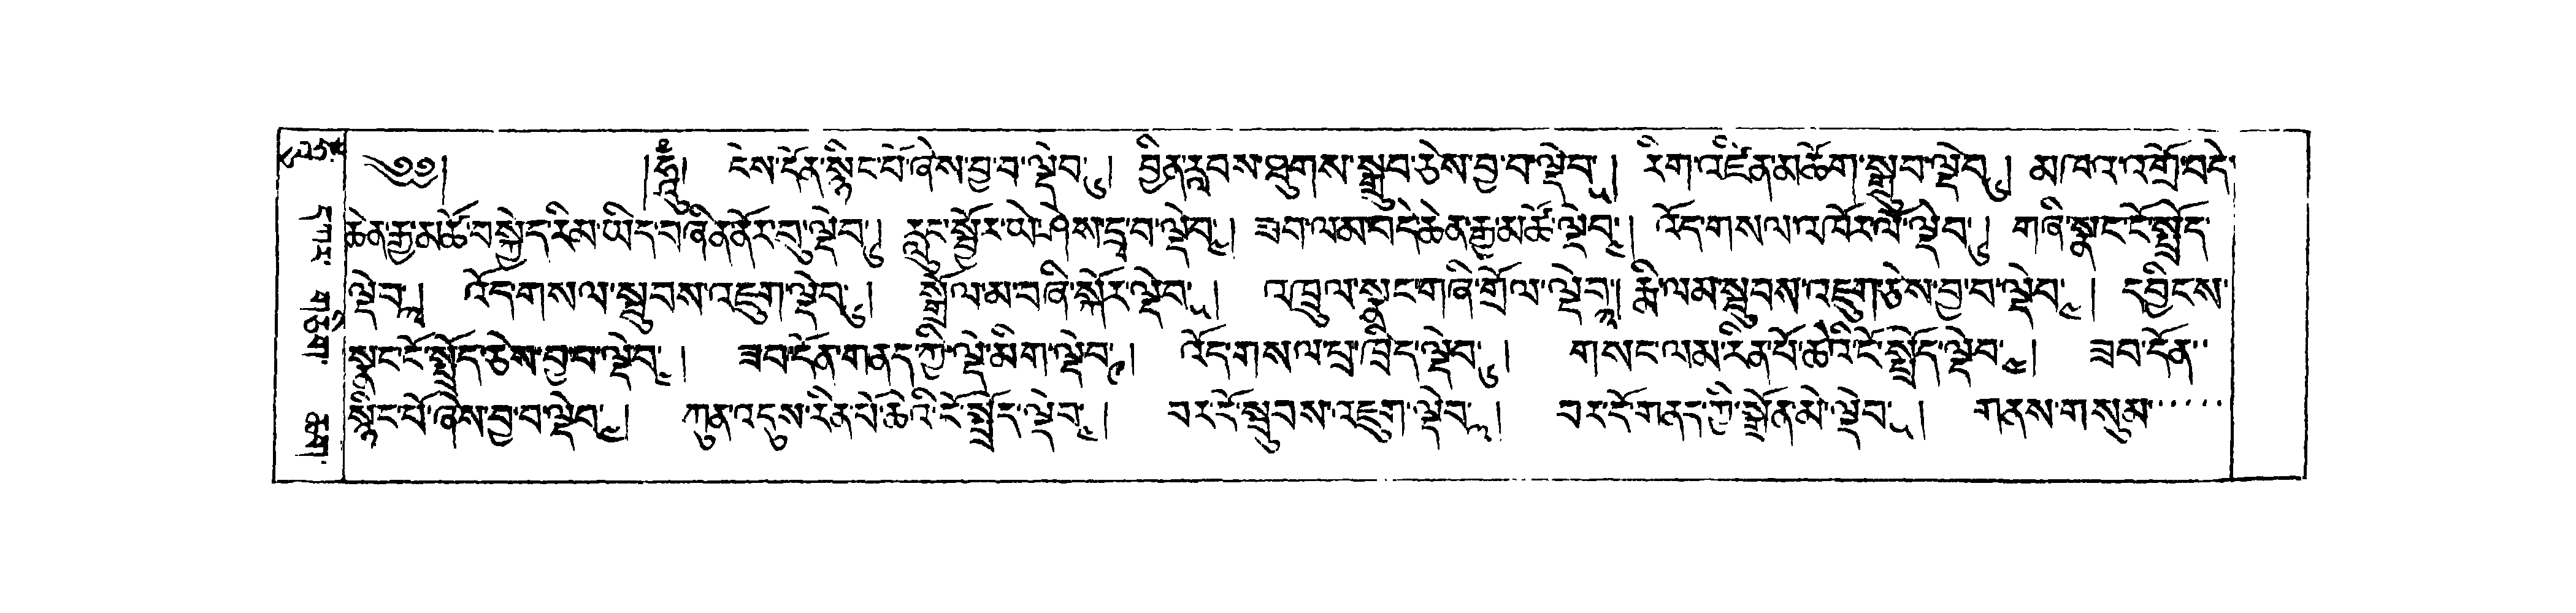 ༄༅། །ཧཱུྃ། ངེས་དོན་སྙིང་པོ་ཞེས་བྱ་བ་ལྡེབ་༦། བྱིན་རླབས་ཐུགས་སྒྲུབ་ཅེས་བྱ་བ་ལྡེབ་༥། རིག་འཛིན་མཆོག་སྒྲུབ་ལྡེབ་༦། མཁའ་འགྲོ་བདེ་
ཆེན་རྒྱ་མཚོ་བསྐྱེད་རིམ་ཡིད་བཞིན་ནོར་བུ་ལྡེབ་༦། རླུང་སྦྱོར་ཡེ་ཤེས་དྲྭ་བ་ལྡེབ་༤། ཟབ་ལམ་བདེ་ཆེན་རྒྱ་མཚོ་ལྡེབ་༤། འོད་གསལ་འཁོར་ལོ་ལྡེབ་༦། གཞི་སྣང་ངོ་སྤྲོད་
ལྡེབ་༣། འོད་གསལ་སྦུབས་འཇུག་ལྡེབ་༦། སྒྲོལ་མ་བཞི་སྐོར་ལྡེབ་༥། འཁྲུལ་སྣང་གཞི་གྲོལ་ལྡེབ་༣། རྨི་ལམ་སྦུབས་འཇུག་ཅེས་བྱ་བ་ལྡེབ་༤། དབྱིངས་
སྣང་ངོ་སྤྲོད་ཅེས་བྱ་བ་ལྡེབ་༤། ཟབ་དོན་གནད་ཀྱི་ལྡེ་མིག་ལྡེབ་༩། འོད་གསལ་ཕྲ་ཁྲིད་ལྡེབ་༦། གསང་ལམ་རིན་པོ་ཆེའི་ངོ་སྤྲོད་ལྡེབ་༤། ཟབ་དོན་
སྙིང་པོ་ཞེས་བྱ་བ་ལྡེབ་༤། ཀུན་འདུས་རིན་པོ་ཆེའི་ངོ་སྤྲོད་ལྡེབ་༤། བར་དོ་སྦུབས་འཇུག་ལྡེབ་༣། བར་དོ་གནད་ཀྱི་སྒྲོན་མེ་ལྡེབ་༥། གནས་གསུམ་